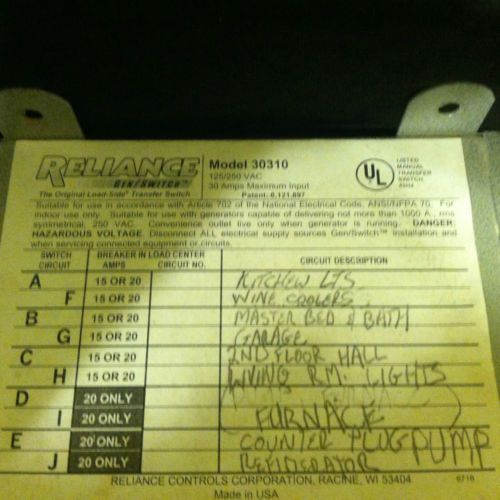 RELIANCE
GEN/SWITCH™
The Original Load-Side Transfer Switch
Model 30310
125/250 VAC
30 Amps Maximum Input
Patent 6,121,697
UL
LISTED
MANUAL
TRANSFER
SWITCH
Suitable for use in accordance with Article 702 of the National Electrical Code, ANSI/NFPA 70. For
indoor use only. Suitable for use with generators capable of delivering not more than 1000 A., rms
symmetrical, 250 VAC. Convenience outlet live only when generator is running. DANGER:
HAZARDOUS VOLTAGE. Disconnect ALL electrical supply sources Gen/Switch™ installation and
when servicing connected equipment or circuits.
SWITCH CIRCUIT BREAKER IN LOAD CENTER AMPS CIRCUIT NO. CIRCUIT DESCRIPTION
A 15 OR 20 KITCHEN LTS
F 15 OR 20 WINE COOLERS
B 15 OR 20 MASTER BED & BATH
G 15 OR 20 GARAGE
C 15 OR 20 2ND FLOOR HALL
H 15 OR 20 LIVING RM. LIGHTS
D 20 ONLY
I 20 ONLY FURNACE
E 20 ONLY COUNTER PLUG PUMP
J 20 ONLY REFIDERATOR
RELIANCE CONTROLS CORPORATION, RACINE, WI 53404
0718
Made in USA